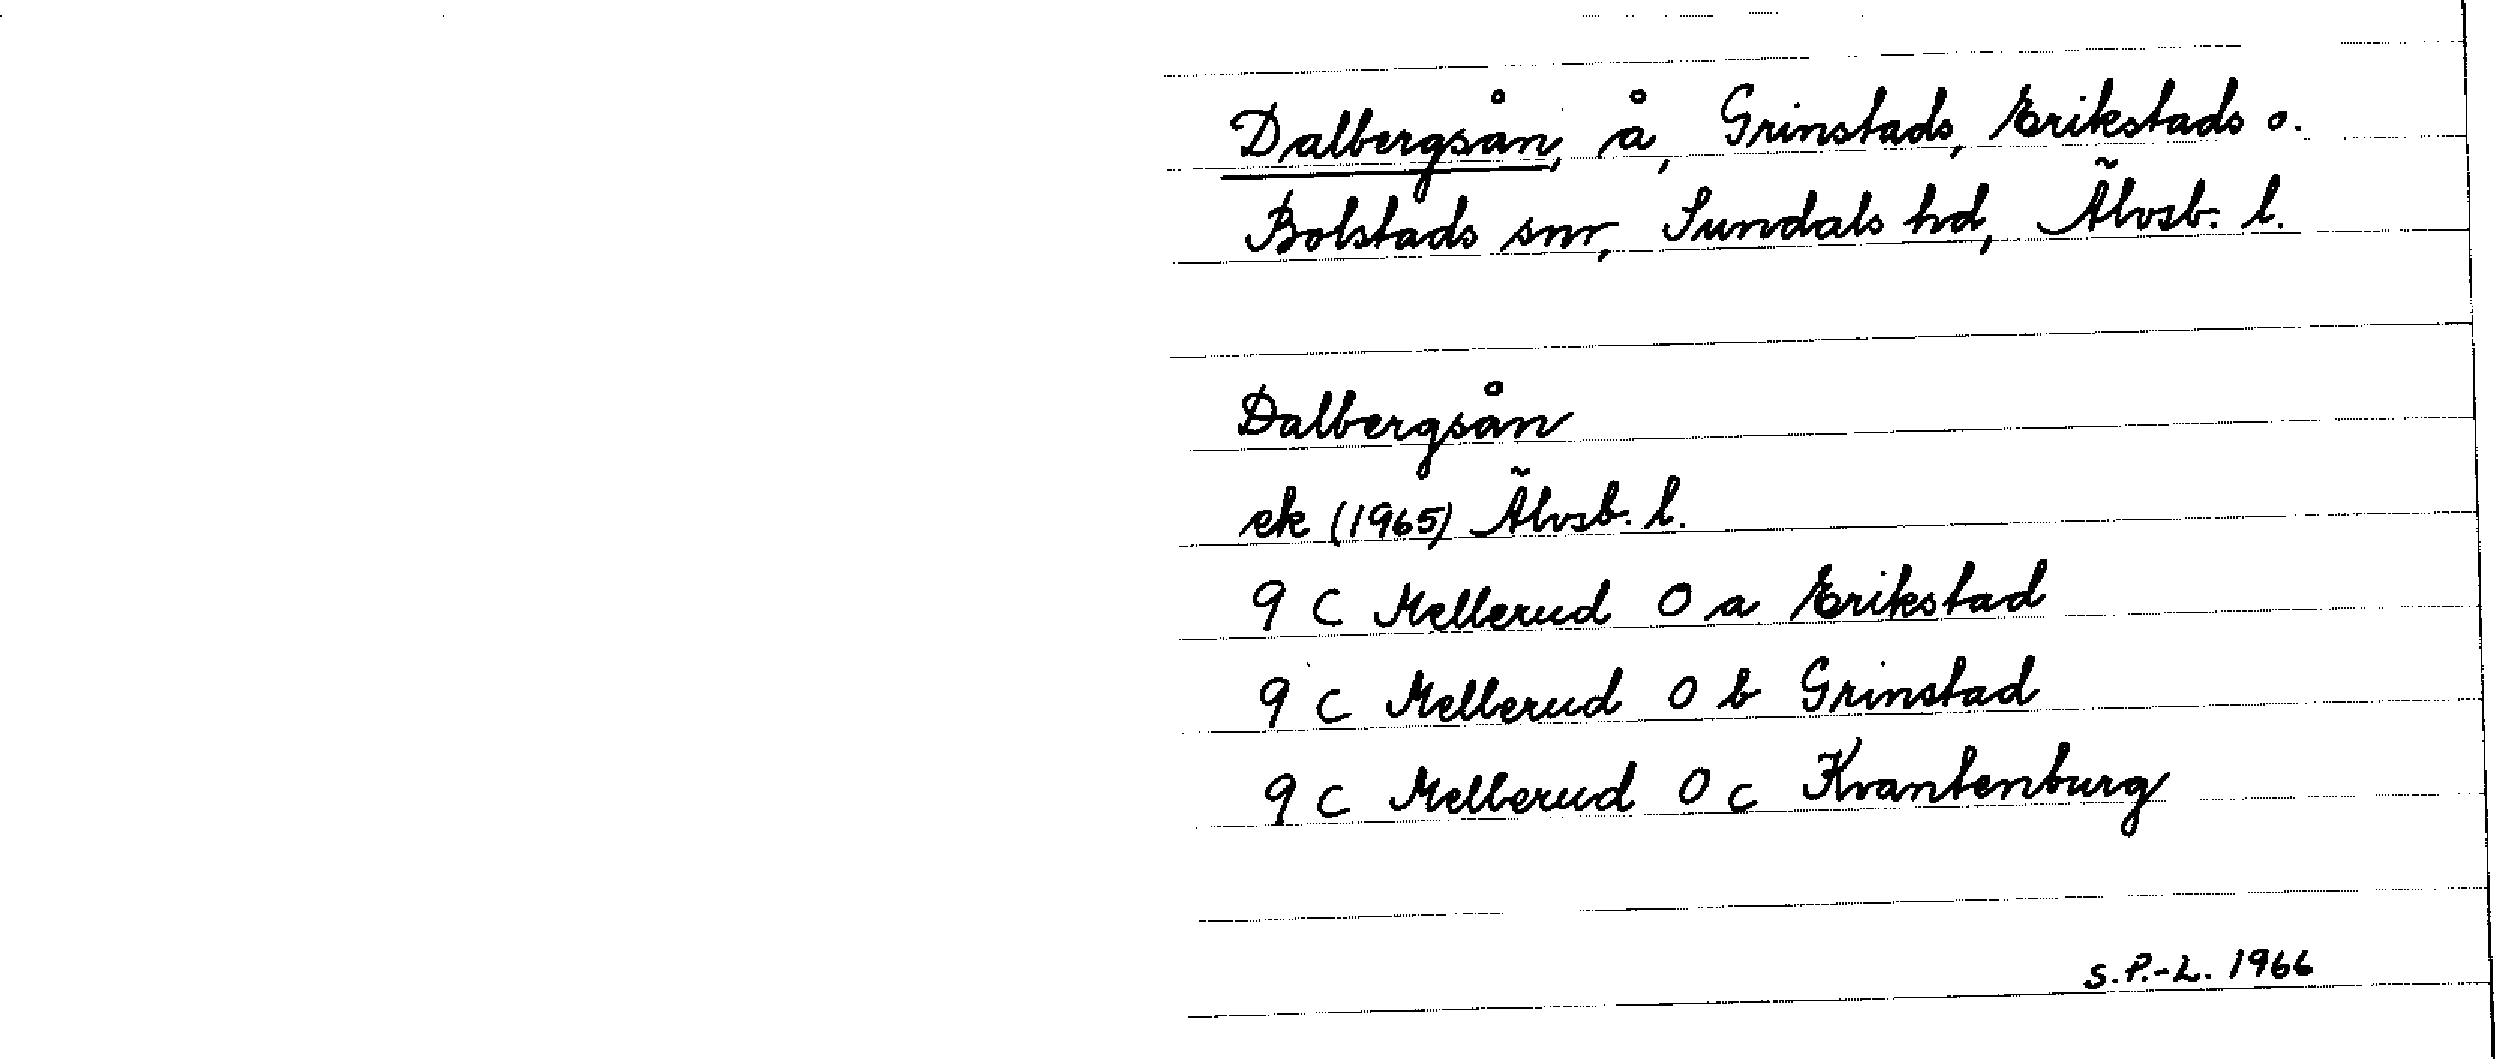 Dalbergsån, å, Grinstads, Erikstads o.
Bolstads snr, Sundals hd, Älvsb. l.
Dalbergsån
ek (1965) Älvsb. l.
9 C Mellerud 0 a Erikstad
9 C Mellerud 0 b Grinstad
9 C Mellerud 0 c Kvantenburg
S.P.-L. 1966